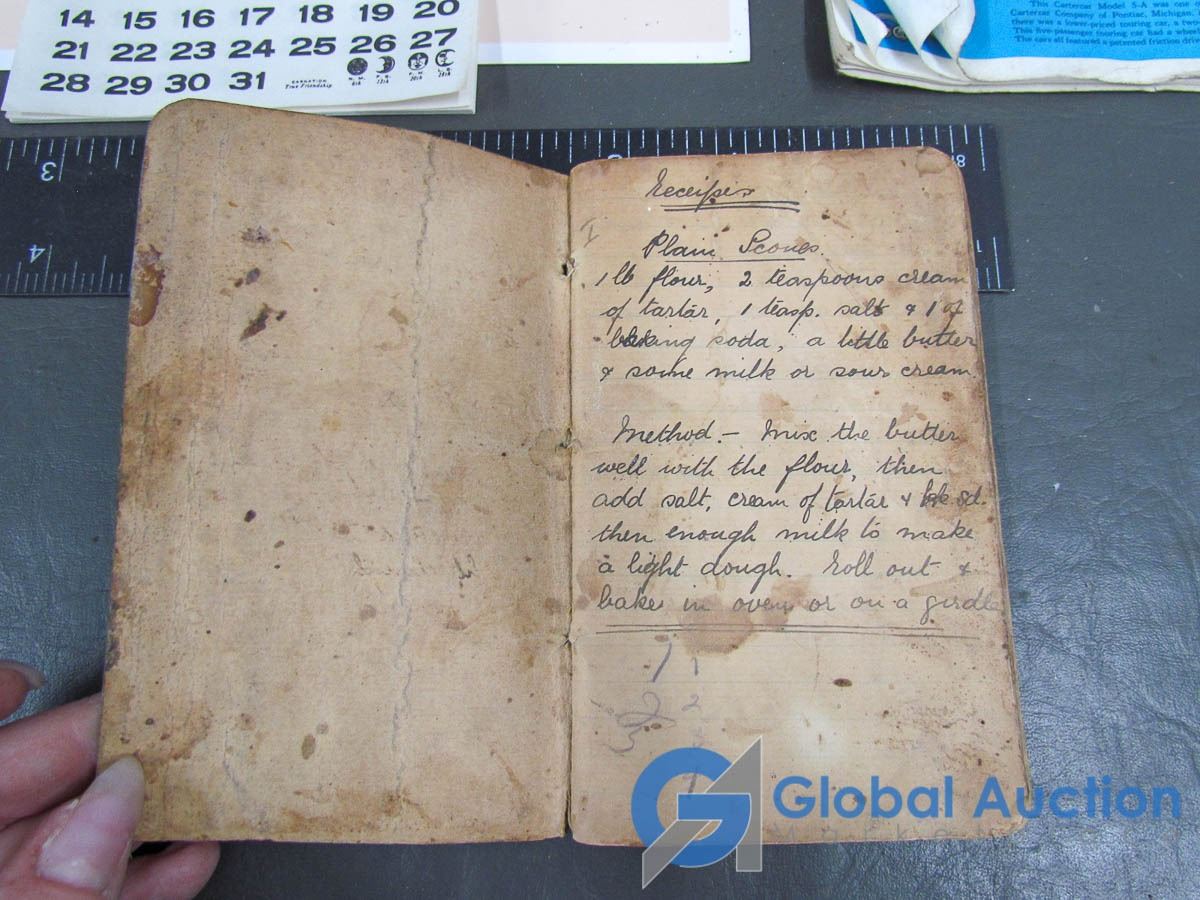 14 15 16 17 18 19 20
21 22 23 24 25 26 27
28 29 30 31
CARNATION
True Friendship
This Cartercar Model 5-A was one o
Cartercar Company of Pontiac, Michigan,
there was a lower-priced touring car, a two
This five-passenger touring car had a wheel
The cars all featured a patented friction driv
3
4
8
Receipes
I
Plain Scones.
1 lb flour, 2 teaspoons cream
of tartár, 1 teasp. salt & 1 of
baking soda, a little butter
& some milk or sour cream.
Method. — Mix the butter
well with the flour, then
add salt, cream of tartár &
then enough milk to make
a light dough. Roll out &
bake in oven or on a girdle
1 1
2 2
3
Global Auction